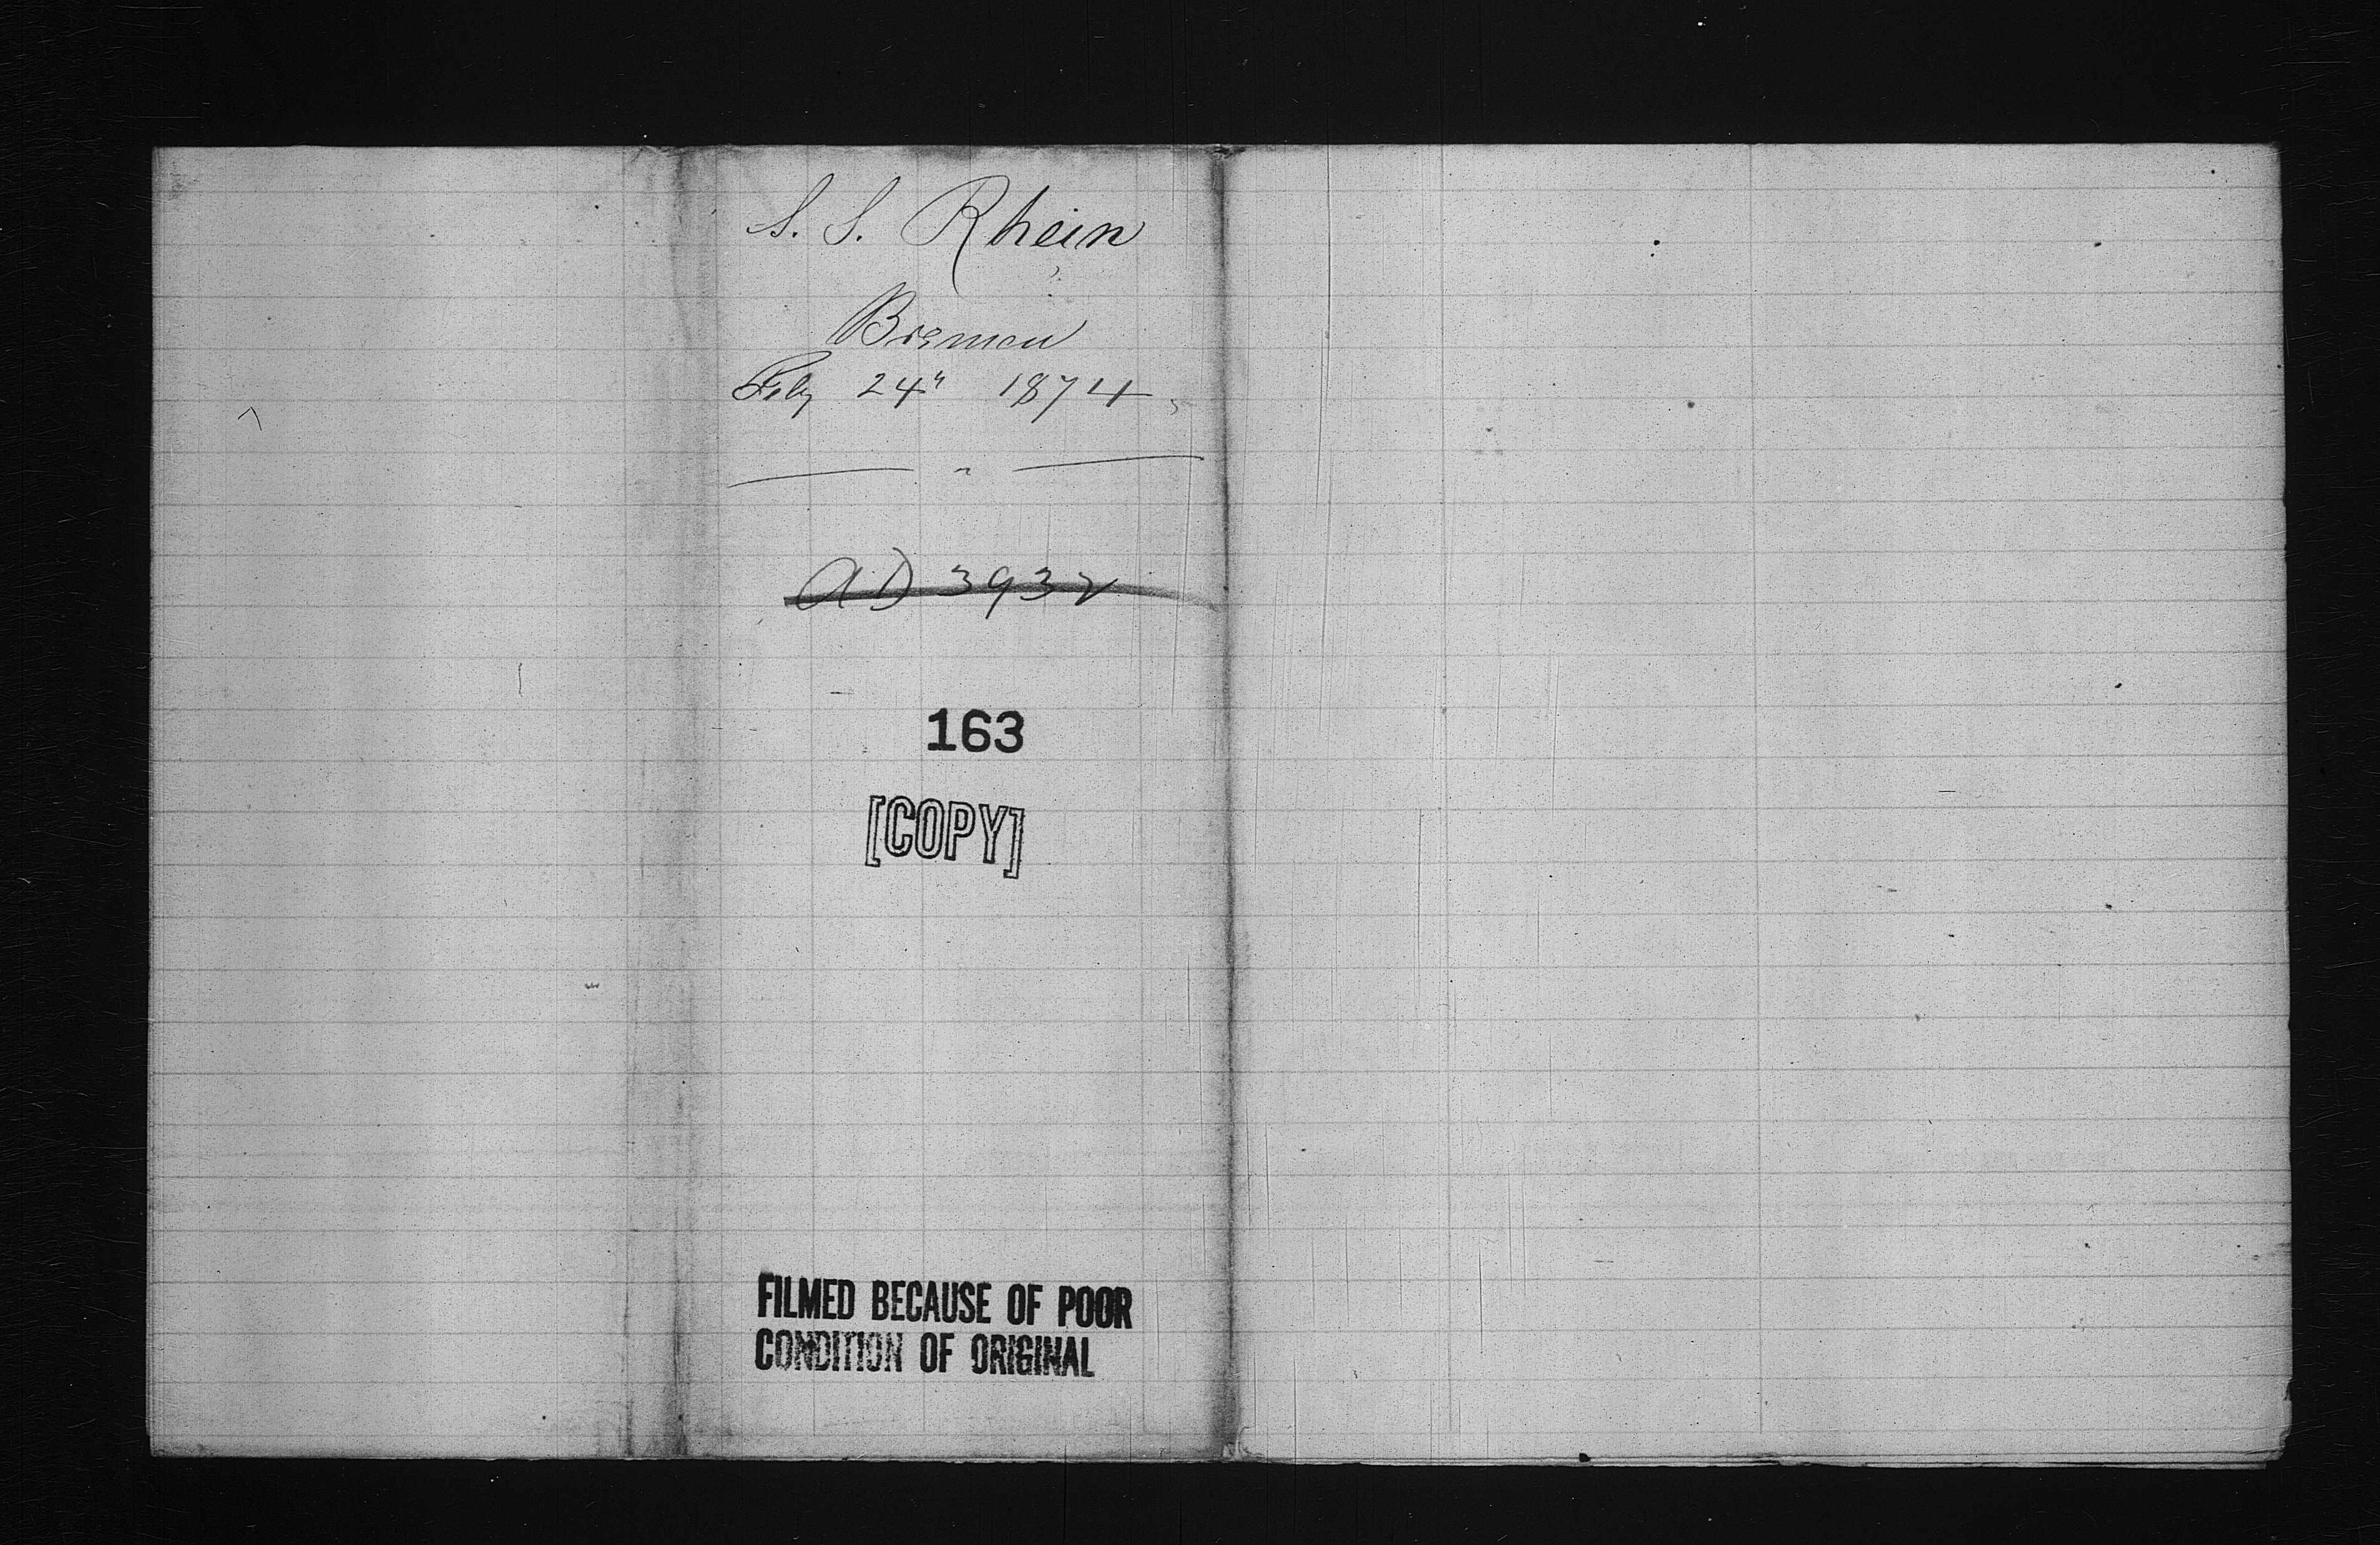 S. S. Rhein
Bremen
Feby 24" 1874
AD 3932
163
[COPY]
FILMED BECAUSE OF POOR
CONDITION OF ORIGINAL